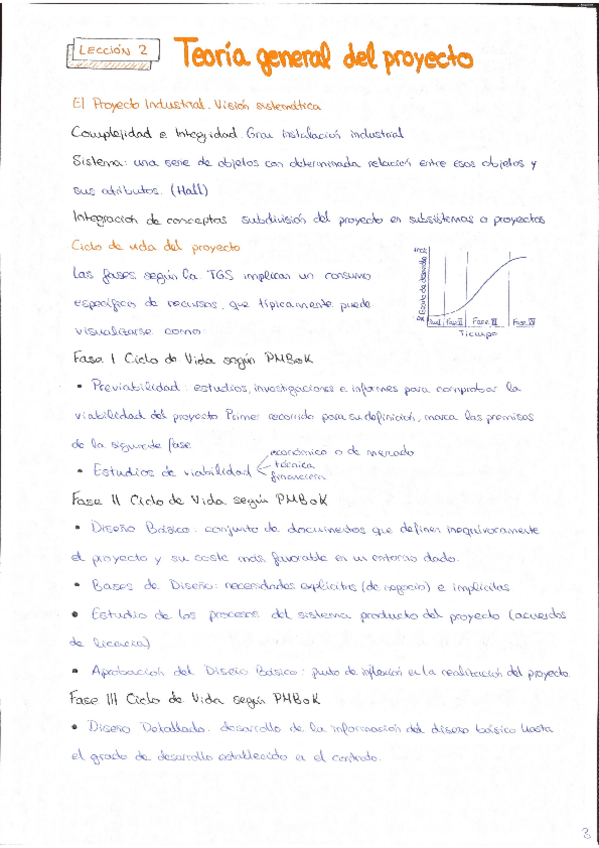 LECCIÓN 2
Teoría general del proyecto
El Proyecto Industrial. Visión sistemática
Complejidad e Integridad. Gran instalación industrial
Sistema: una serie de objetos con determinada relación entre esos objetos y
sus atributos. (Hall)
Integración de conceptos subdivisión del proyecto en subsistemas o proyectos
Ciclo de vida del proyecto
Las fases según la TGS implican un consumo
específico de recursos, que típicamente puede
visualizarse como:
Fase II Fase III Fase IV
Tiempo
Fase I Ciclo de Vida según PMBoK
• Previabilidad: estudios, investigaciones e informes para comprobar la
viabilidad del proyecto Primer recorrido para su definición, marca las premisas
de la siguiente fase
• Estudios de viabilidad
económico o de mercado
técnica
financiera
Fase II Ciclo de Vida según PMBoK
• Diseño Básico: conjunto de documentos que definen inequívocamente
el proyecto y su coste más favorable en un entorno dado.
• Bases de Diseño: necesidades explícitas (de negocio) e implícitas
• Estudio de los procesos del sistema producto del proyecto (acuerdos
de licencia)
• Aprobación del Diseño Básico: punto de inflexión en la realización del proyecto.
Fase III Ciclo de Vida según PMBoK
• Diseño Detallado: desarrollo de la información del diseño básico hasta
el grado de desarrollo establecido en el contrato.
3